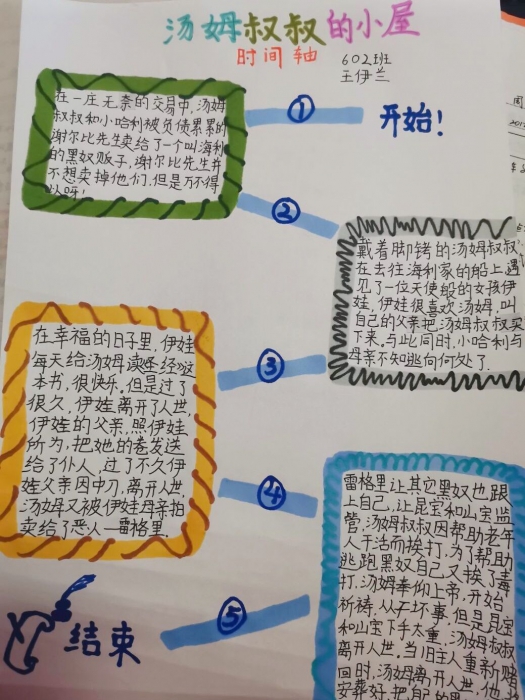 汤姆叔叔的小屋
时间轴
602班
王伊兰
①
开始!
在一庄无奈的交易中,汤姆
叔叔和小哈利被负债累累的
谢尔比先生卖给了一个叫海利
的黑奴贩子,谢尔比先生并
不想卖掉他们.但是万不得
以呀!
②
戴着脚铐的汤姆叔叔
在去往海利家的船上,遇
见了一位天使般的女孩伊
娃,伊娃很喜欢汤姆,叫
自己的父亲把汤姆叔叔买
下来,与此同时,小哈利与
母亲不知逃向何处了.
③
在幸福的日子里,伊娃
每天给汤姆读《圣经》这
本书,很快乐.但是过了
很久,伊娃离开了人世,
伊娃的父亲,照伊娃
所为,把她的卷发送
给了仆人,过了不久伊
娃父亲因中刀,离开人世,
汤姆又被伊娃母亲拍
卖给了恶人—雷格里.
④
雷格里让其它黑奴也跟
上自己,让昆宝和山宝监
管.汤姆叔叔因帮助老年
人干活而挨打,为了帮助
逃跑黑奴自己又挨了毒
打,汤姆奉仰上帝,开始
祈祷,从不坏事,但是昆宝
和山宝下手太重,汤姆叔叔
离开人世.当旧主人重新赌
回时,汤姆离开人世,他
⑤
结束